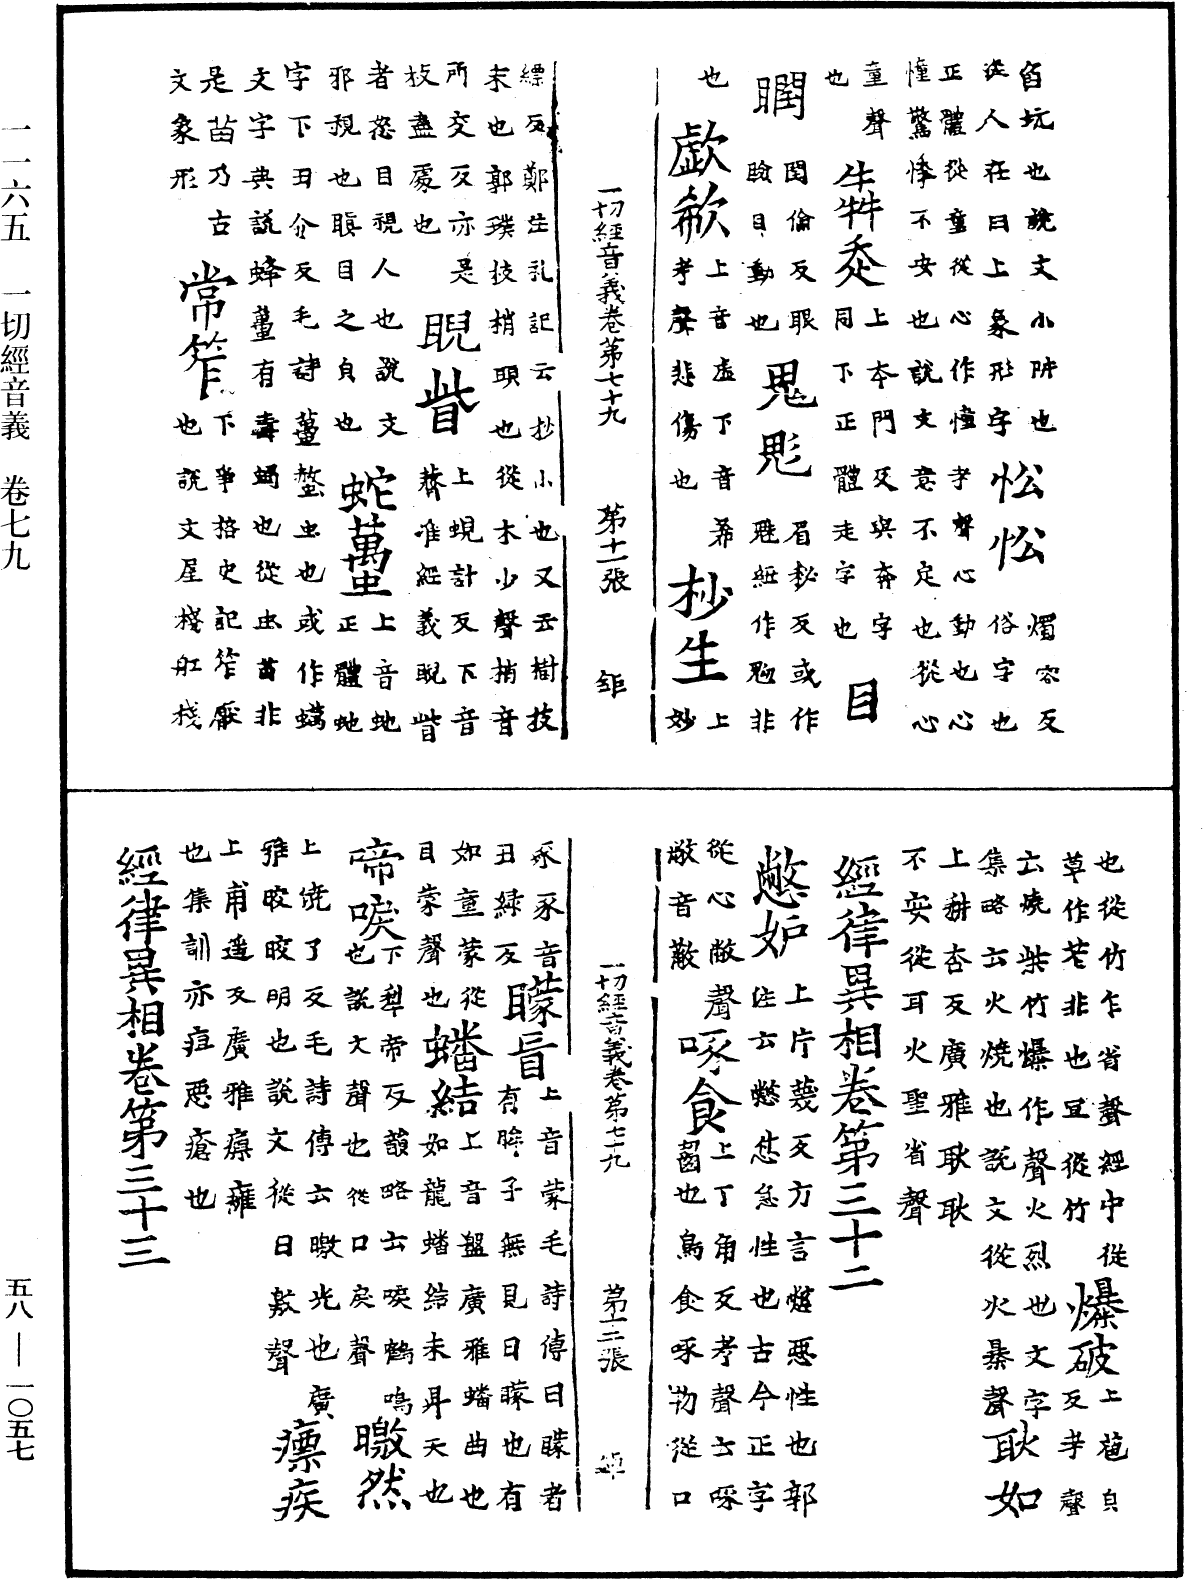 一一六五　一切經音義　卷七九
臽坑也說文小阱也 忪忪 燭容反
從人在臼上象形字 俗字也
正體從童從心作憧考聲心動也心
憧驚悸不安也說文意不定也從心
童聲 犇走 上本門反與奔字
也 同下正體走字也 目
瞤 閏倫反眼 鬼鬽 眉秘反或作
瞼目動也 魅經作勉非
也 歔欷 上音虛下音希 杪生 上
考聲悲傷也 妙
一切經音義卷第七十九　第十一張　鉅
縹反鄭注礼記云杪小也又云樹枝
末也郭璞枝梢頭也從木少聲梢音
所交反亦是 睨眥 上蜺計反下音
杪盡處也 薺准經義睨眥
者怒目視人也說文 蛇蠆 上音虵
邪視也瞋目之皃也 正體虵
字下丑介反毛詩蠆螫虫也或作蠇
文字典說蜂蠆有毒蝎也從虫萬非
是苗乃古 常笮 下爭格反史記笮厭
文象形 也說文屋棧舡棧
也從竹乍省聲經中從 爆破 上苞皃
草作苲非也宜從竹 反考聲
云燒柴竹爆作聲火烈也文字
集略云火燒也說文從火暴聲 耿如
上耕杏反廣雅耿耿
不安從耳火聖省聲
經律異相卷第三十二
憋妒 上片蔑反方言憋惡性也郭
注云憋怤急性也古今正字
從心敝聲 啄食 上丁角反考聲云啄
敝音蔽 齧也鳥食啄物從口
一切經音義卷第七十九　第十二張　鉅
豖豖音 矇盲 上音蒙毛詩傳曰矇者
丑緑反 有眸子無見曰矇也有
如童蒙從 蟠結 上音盤廣雅蟠曲也
目蒙聲也 如龍蟠結未昇天也
啼唳 下犁帝反韻略云唳鶴鳴 曒然
也說文聲也從口戾聲
上澆了反毛詩傳云曒光也廣
雅皎皎明也說文從日敫聲 瘭疾
上甫遥反廣雅瘭癰
也集訓亦疽惡瘡也
經律異相卷第三十三
五八—一〇五七